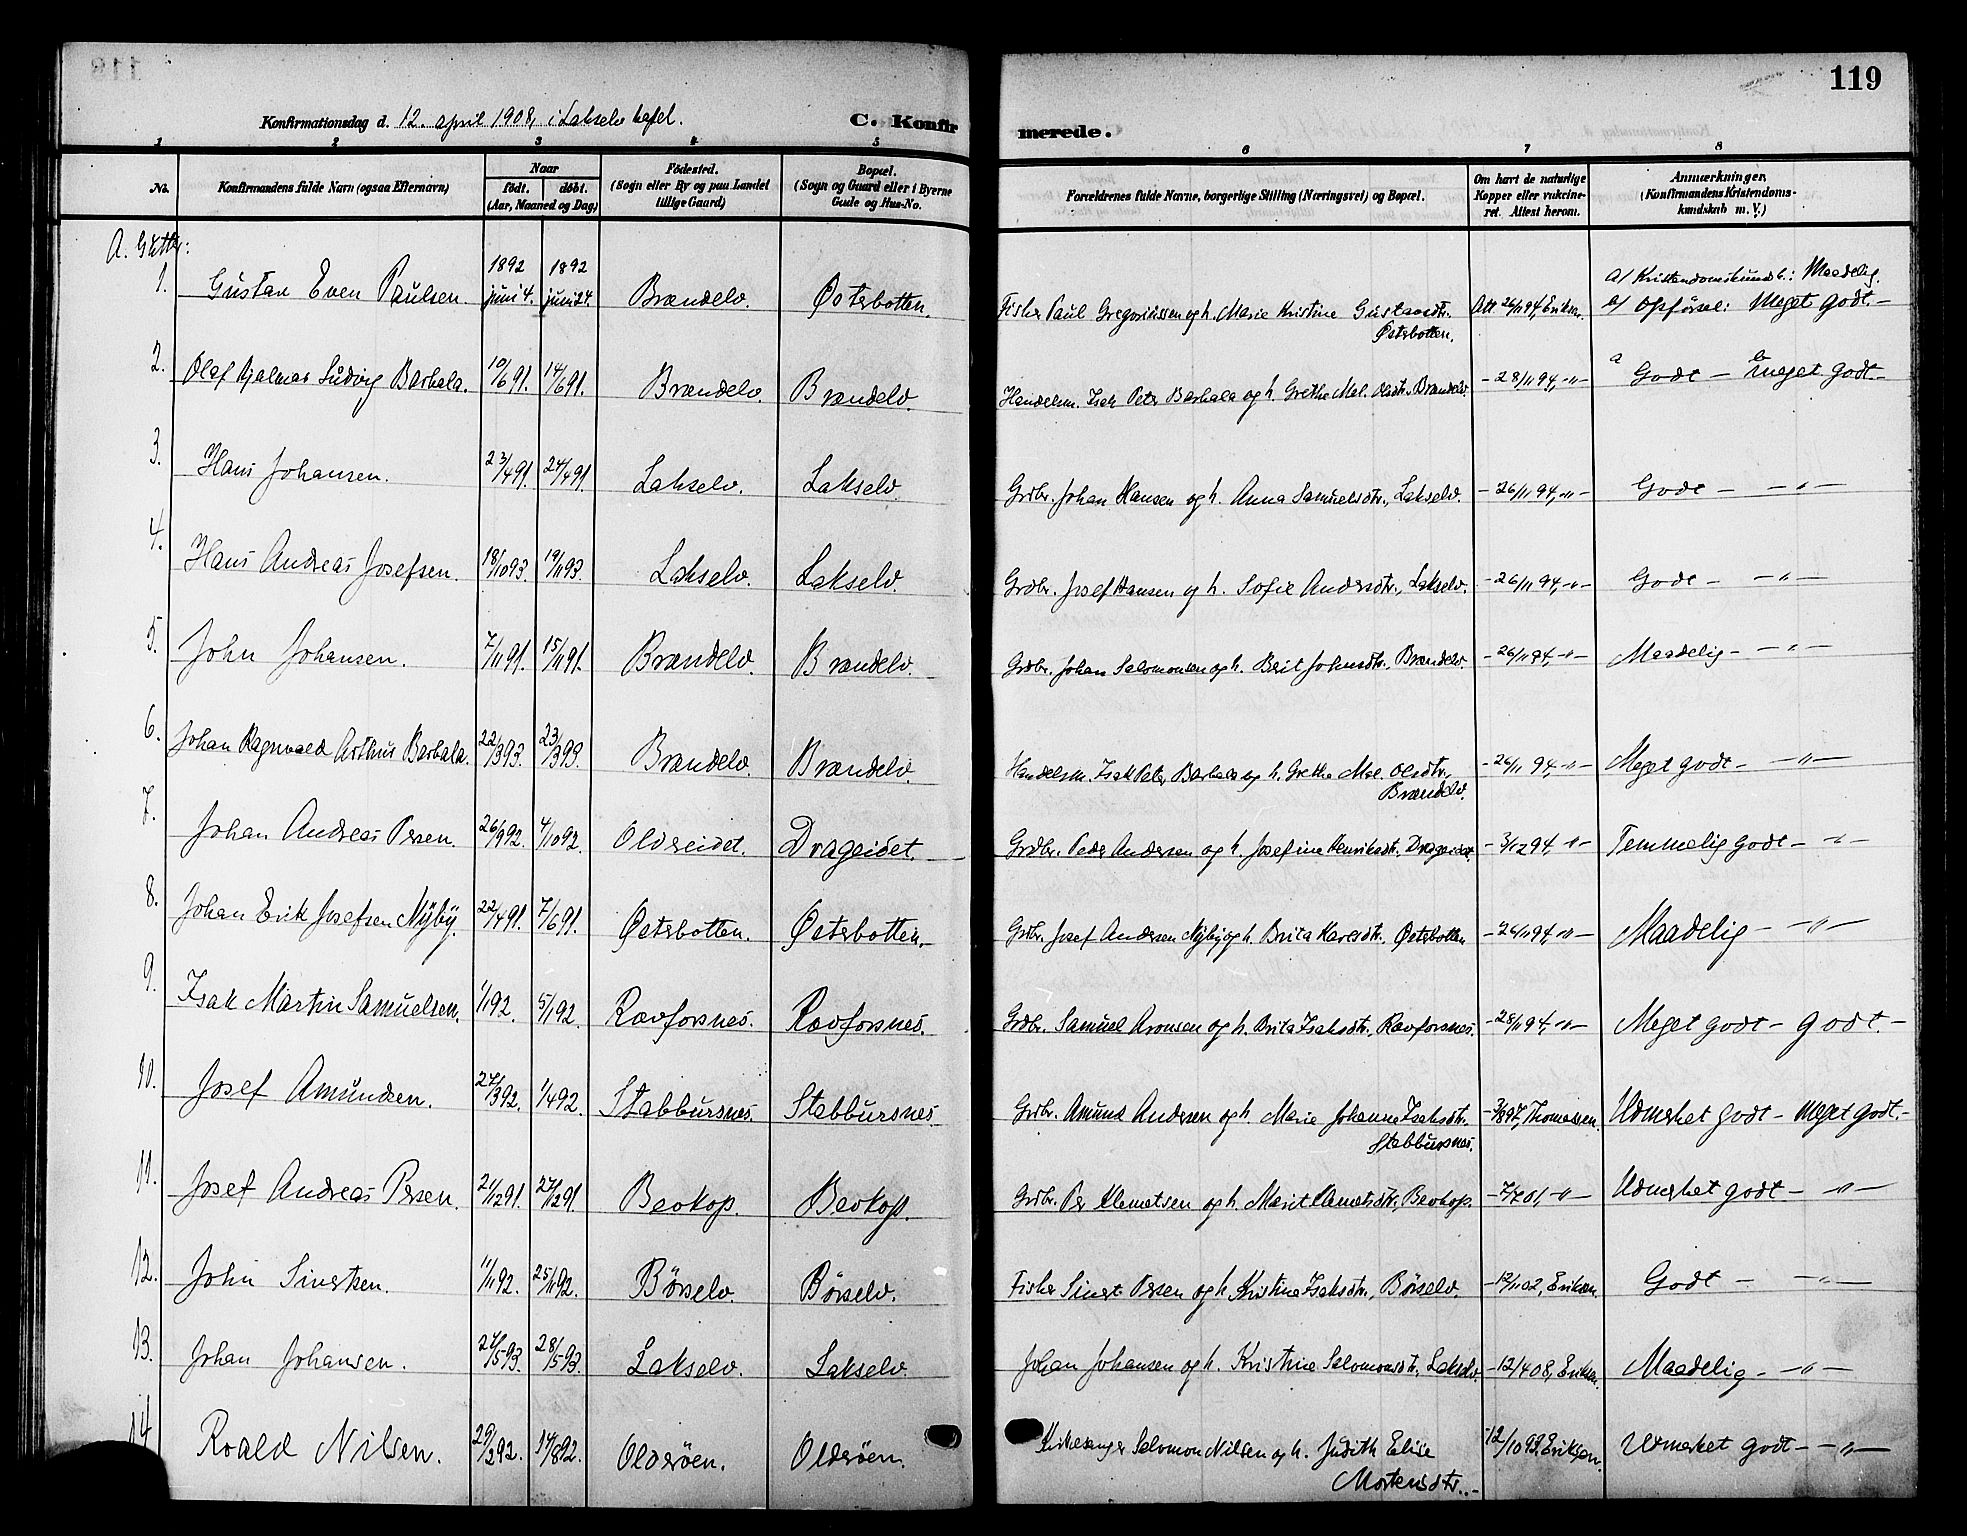 119
Konfirmationsdag d. 12. april 1908, i Lakselv kapel. C. Konfirmerede.
1 2 3 4 5 6 7 8
No. Konfirmandens fulde Navn (ogsaa Efternavn) Naar født. døbt. (Aar, Maaned og Dag) Fødested. (Sogn eller By og paa Landet tillige Gaard) Bopæl. (Sogn og Gaard eller i Byerne Gade og Hus-No. Forældrenes fulde Navne, borgerlige Stilling (Næringsvei) og Bopæl. Om havt de naturlige Kopper eller vakcineret. Attest herom. Anmærkninger. (Konfirmandens Kristendomskundskab m. V.)
A. Gutter:
1. Gustav Even Paulsen. 1892 juni 4. 1892 juni 24. Brændelv. Østerbotten. Fisker Paul Gregoriussen og h. Marie Kristine Gustavsdtr. Østerbotten. Att. 26/11 94, Eriksen. a/ Kristendomskundsk.: Maadelig. b/ Opførsel: Meget godt. –
2. Olaf Hjalmar Ludvig Barhala. 10/6 91. 14/6 91. Brændelv. Brændelv. Handelsm. Isak Peter Barhala og h. Grethe Mal. Olsdtr. Brændelv. – 28/11 94, –"– a Godt – b meget godt. –
3. Hans Johansen. 23/4 91. 24/4 91. Lakselv. Lakselv. Grdbr. Johan Hansen og h. Anna Samuelsdtr., Lakselv. – 26/11 94, –"– Godt – –"–
4. Hans Andreas Josefsen. 18/10 93. 19/11 93. Lakselv. Lakselv. Grdbr. Josef Hansen og h. Sofie Andersdtr., Lakselv. – 26/11 94, –"– Godt – –"–
5. John Johansen. 7/11 91. 15/11 91. Brændelv. Brændelv. Grdbr. Johan Salomonsen og h. Berit Johnsdtr. Brændelv. – 26/11 94, –"– Maadelig – –"–
6. Johan Ragnvald Arthur Barhala. 22/3 93. 23/3 93. Brændelv. Brændelv. Handelsm. Isak Peter Barhala og h. Grethe Mal. Olsdtr., Brændelv. – 26/11 94, –"– Meget godt – –"–
7. Johan Andreas Persen. 26/9 92. 4/10 92. Oldereidet. Drageidet. Grdbr. Peder Andersen og h. Josefine Henriksdtr., Drageidet. – 3/12 94, –"– Temmelig godt – –"–
8. Johan Erik Josefsen Nÿbÿ. 22/4 91. 7/6 91. Østerbotten. Østerbotten. Grdbr. Josef Andersen Nÿbÿ og h. Brita Karesdtr. Østerbotten – 26/11 94, –"– Maadelig – –"–
9. Isak Martin Samuelsen. 1/1 92. 5/1 92. Ravforsnes. Ravforsnes. Grdbr. Samuel Aronsen og h. Brita Isaksdtr. Ravforsnes. – 28/11 94, –"– Meget godt – godt. –
10. Josef Amundsen. 27/3 92. 1/4 92. Stabbursnes. Stabbursnes. Grdbr. Amund Andersen og h. Marie Johanne Isaksdtr. Stabbursnes. – 3/8 97, Thomassen. Udmerket godt – meget godt. –
11. Josef Andreas Persen. 21/12 91. 27/12 91. Bevkop. Bevkop. Grdbr. Per Klemetsen og h. Marit Klemetsdtr., Bevkop. – 7/7 01, –"– Udmerket godt – –"–
12. John Sivertsen. 11/11 92. 25/11 92. Børselv. Børselv. Fisker Sivert Persen og h. Kristine Isaksdtr., Børselv. – 12/11 02, Eriksen. Godt – –"–
13. Johan Johansen. 27/5 93. 28/5 93. Lakselv. Lakselv. Johan Johansen og h. Kristine Salomonsdtr., Lakselv – 12/4 08, Eriksen. Maadelig – –"–
14 Roald Nilsen. 29/2 92. 14/8 92. Olderøen. Olderøen. Kirkesanger Salomon Nilsen og h. Judith Elise Mortensdtr. – – 12/10 92. Eriksen. Udmerket godt – –"–